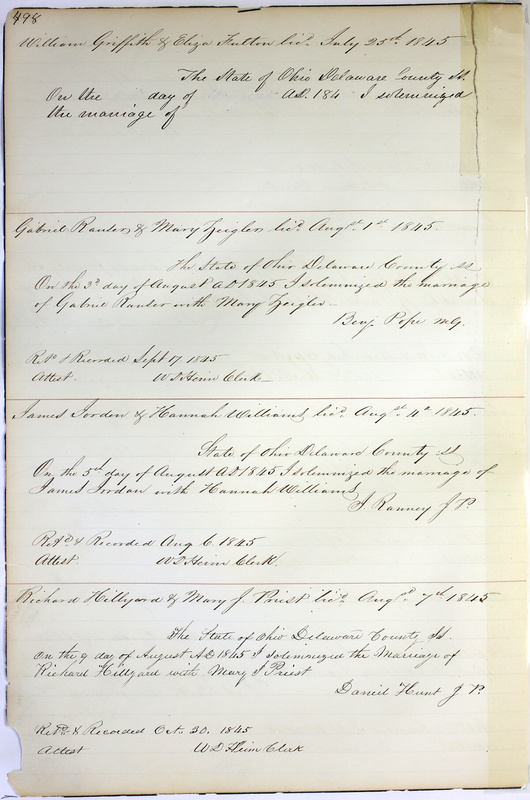 498
William Griffith & Eliza Fulton lic'd July 25th 1845
The State of Ohio Delaware County Ss.
On the day of A.D. 184 I solemnized
the marriage of
Gabriel Ranser & Mary Zeigler lic'd Augst 1st 1845.
The State of Ohio Delaware County ss
On the 3d day of August A.D 1845 I solemnized the marriage
of Gabriel Ranser with Mary Zeigler
Benj. Pope M.G.
Ret'd & Recorded Sept 17 1845
Attest. W D Heim Clerk
James Jordon & Hannah Williams lic'd Augst 4th 1845.
State of Ohio Delaware County ss
On the 5th day of August A.D 1845 I solemnized the marriage of
James Jordan with Hannah Williams
J. Ranney J P.
Ret'd & Recorded Aug 6, 1845
Attest. W D Heim Clerk.
Richard Hillyard & Mary J. Priest lic'd Augst 7th 1845
The State of Ohio Delaware County Ss.
On the 9 day of August A.D 1845 I solemnized the Marriage of
Richard Hillyard with Mary J Priest
Daniel Hunt J P.
Ret'd & Recorded Oct. 30. 1845
Attest W D Heim Clerk